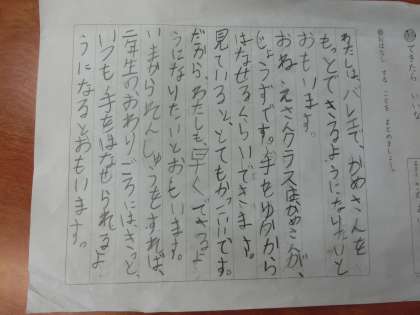 できた
わたしは、バレエで、かめさんを
もっとできるようになりたいと
おもいます。
おねえさんクラスは、かめさんが、
じょうずです。手をゆかから
はなせるくらいできます。
見ていると、とてもかっこいいです。
だから、わたしも、早くできるよ
うになりたいとおもいます。
いまかられんしゅうをすれば、
二年生のおわりごろにはきっと、
いつも手をはなせられるよ
うになるとおもいます。